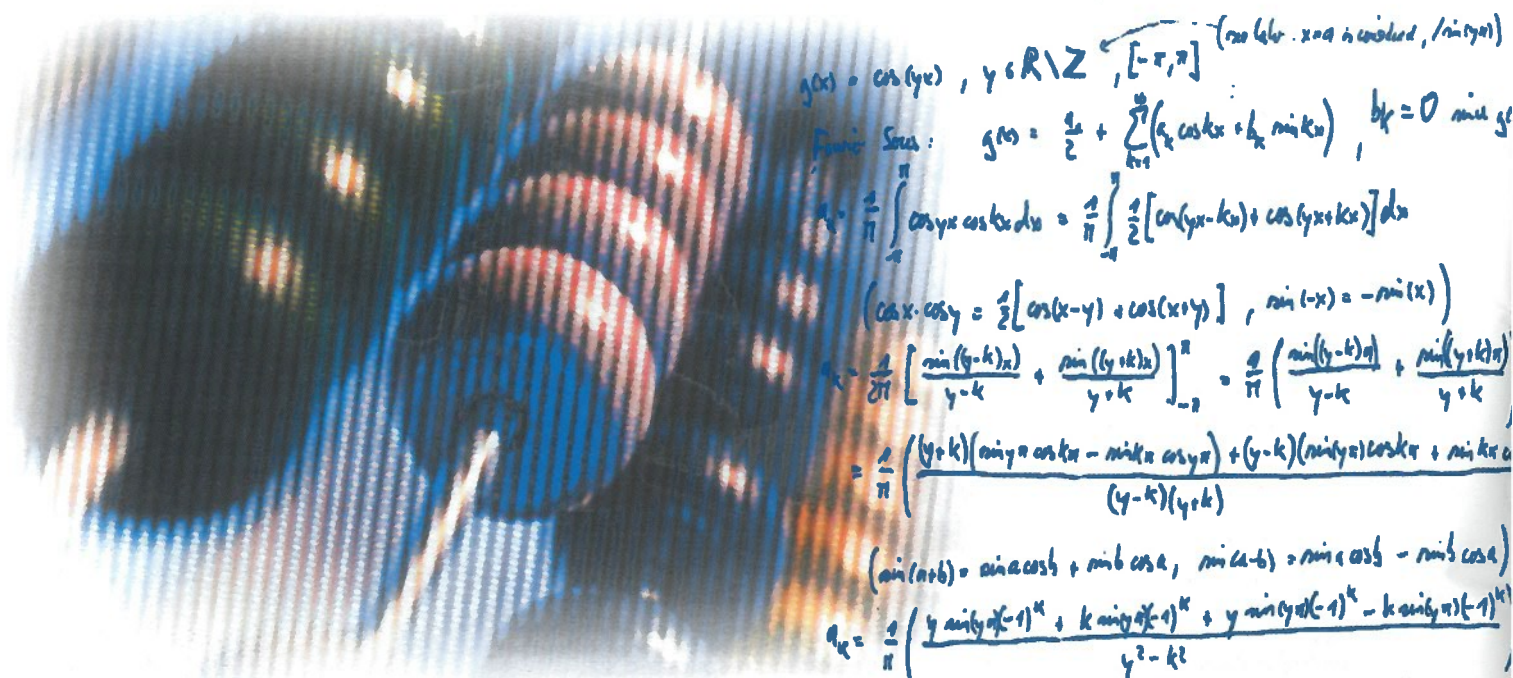 (see later. x=π is considered, / sin(yπ))
g(x) = cos(yx) , y ∈ ℝ\ℤ , [-π,π]
Fourier Series: g(x) = a₀/2 + ∑_{k=1}^{∞} (a_k cos kx + b_k sin kx) , b_k = 0 since g(
a_k = 1/π ∫_{-π}^{π} cos yx cos kx dx = 1/π ∫_{-π}^{π} 1/2 [cos(yx-kx) + cos(yx+kx)] dx
(cos x · cos y = 1/2 [cos(x-y) + cos(x+y)] , sin(-x) = -sin(x))
a_k = 1/2π [ sin((y-k)x)/y-k + sin((y+k)x)/y+k ]_{-π}^{π} = 1/π ( sin((y-k)π)/y-k + sin((y+k)π)/y+k
= 1/π ( (y+k)(sin yπ cos kπ - sin kπ cos yπ) + (y-k)(sin(yπ) cos kπ + sin kπ c / (y-k)(y+k)
(sin(a+b) = sin a cos b + sin b cos a, sin(a-b) = sin a cos b - sin b cos a)
a_k = 1/π ( y sin(yπ)(-1)^k + k sin(yπ)(-1)^k + y sin(yπ)(-1)^k - k sin(yπ)(-1)^k / y²-k² )